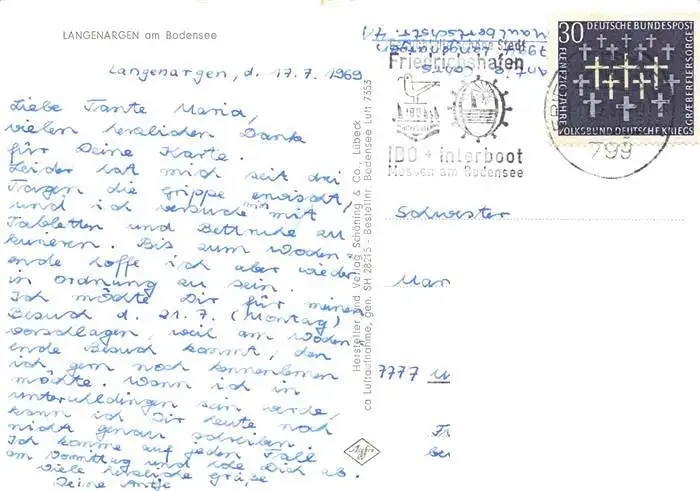 LANGENARGEN am Bodensee
Langenargen, d. 17.7.1969
Liebe Tante Maria,
vielen herzlichen Dank
für Deine Karte.
Leider hat mich seit drei
Tagen die Grippe erwischt,
und ich versuche mich mit
Tabletten und Bettruhe zu
kurieren. Bis zum Wochen-
ende hoffe ich aber wieder
in Ordnung zu sein.
Ich möchte Dir für meinen
Besuch d. 21.7. (Montag)
vorschlagen, weil am Wochen
ende Besuch kommt, den
ich gern noch kennenlernen
möchte. Wann ich in
Unteruhldingen sein werde,
kann ich Dir heute noch
nicht genau schreiben.
Ich komme auf jeden Fall
am Vormittag und hole Dich ab.
Viele herzliche Grüße
Deine Antje
Hersteller und Verlag Schöning & Co., Lübeck
ca Luftaufnahme, gen. SH 28215 - Bestellnr. Bodensee Luft 7353
Antje
7994 Langenargen
Maulbertschstr. 71
Stadt
Friedrichshafen
IBO + interboot
Messen am Bodensee
799
30
DEUTSCHE BUNDESPOST
FÜNFZIG JAHRE
VOLKSBUND DEUTSCHE KRIEGS
GRÄBERFÜRSORGE
Schwester
Mar
7777 U